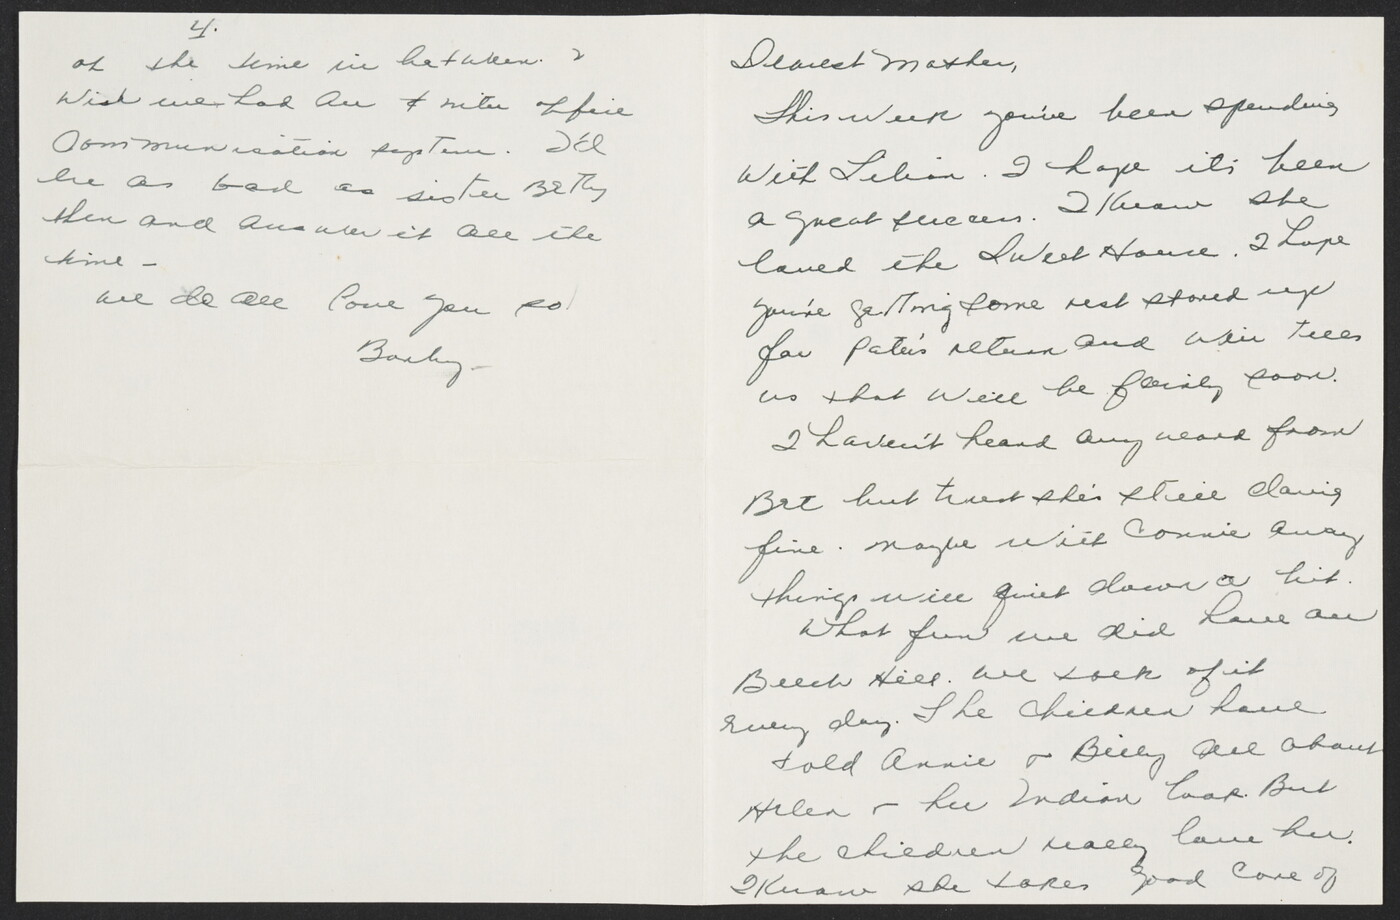 4.
of the time in between. I
Wish we had an inter office
Communication system. I'd
be as bad as sister Betty
then and answer it all the
time -
We do all love you so
Dearest Mother,
This week you've been spending
With Lilian. I hope it's been
a great success. I Know she
loved the Sweet House. I hope
you're getting some rest stored up
for Pete's return and Win tells
us that will be fairly soon.
I haven't heard any word from
Bet but trust she's still doing
fine. Maybe with Connie away
things will quiet down a bit.
What fun we did have at
Beech Hill. We talk of it
Every day. The children have
told Annie & Billy all about
Helen & her Indian look. But
the children really love her.
I Know she takes good care of